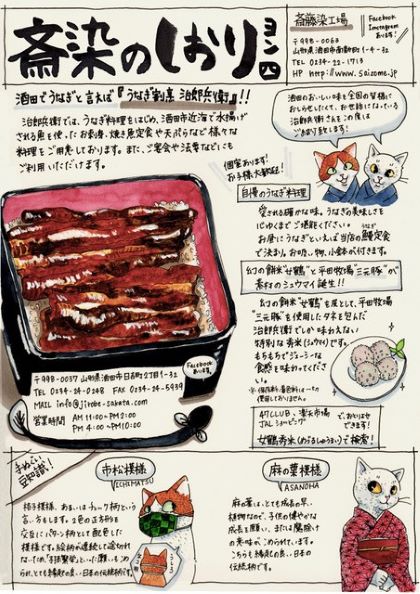 斎染のしおり ヨン四
斎藤染工場
Facebook
Instagram
あります!
〒998-0063
山形県酒田市南新町1-4-32
TEL 0234-22-1713
HP http://www.saizome.jp
酒田でうなぎと言えば『うなぎ割烹 治郎兵衛』!!
治郎兵衛では、うなぎ料理をはじめ、酒田市近海で水揚げ
される魚を使ったお刺身、焼き魚定食や天ぷらなど様々な
料理をご用意しております。また、ご宴会や法要などにも
ご利用いただけます。
酒田のおいしい味を全国の皆様に
お知らせしたくて、お世話になっている
治郎兵衛さんをこの度は
ご紹介致します!
個室あります!
お子様も大歓迎!
自慢のうなぎ料理
愛される確かな味。うなぎの美味しさを
心ゆくまでご堪能ください。
お昼にうなぎといえば当店の鰻定食
で決まり。お吸い物、小鉢が付きます。
幻の餅米"女鶴"と平田牧場"三元豚"が
素材のシュウマイ誕生!!
幻の餅米"女鶴"を衣として、平田牧場
"三元豚"を使用したタネを包んだ
治郎兵衛でしか味わえない
特別な秀米(シュウマイ)です。
もちもちでジューシーな
食感を味わってくだ
さい。
※保存料・着色料は一切
使用しておりません。
47CLUB、楽天市場
JALショッピング
で、おとりよせ
できます!
女鶴秀米(めづるしゅうまい)で検索!
Facebook
あります。
〒998-0037 山形県酒田市日吉町2丁目1-32
TEL 0234-24-0248 FAX 0234-24-5939
MAIL info@jirobe-sakata.com
営業時間 AM 11:00~PM 2:00
PM 4:00~PM 10:00
手ぬぐい
豆知識!
市松模様
ICHIMATSU
格子模様、あるいはチェック柄という
言い方もします。2色の正方形を
交互にパターン柄として配色した
模様です。絵柄が連続して途切れ
ないため「子孫繁栄」といった願いもこめ
られ、とても縁起の良い日本の伝統柄です。
麻の葉模様
ASANOHA
麻の葉は、とても成長の早い
植物なので、子供の健やかな
成長を願い、または魔除け
の意味がこめられています。
こちらも縁起の良い、日本の
伝統柄です。